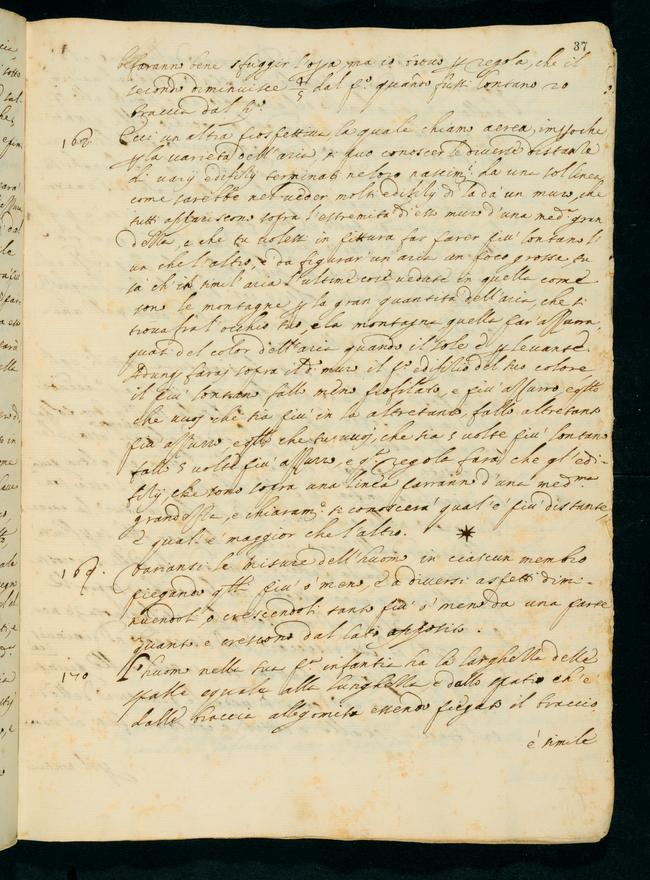 37
faranno bene sfuggir l'opa ma io trovo p regola, che il
secondo diminuisce 4/5 dal p.º quando fusse lontano 20
braccia dal p.º
168 Ecci un altra prospettiva la quale chiamo aerea, impoche
p la varietà dell'aria, si può conoscer le diverse distanze
di varij edifitij terminati ne loro nascim.ti da una sol linea
come sarebbe nel veder molti edifitij di là da un muro, che
tutti appariscono sopra l'estremità di esso muro d'una med.ma gran
dezza, e che tu volessi in pittura far parer più lontano l'
un che l'altro, è da figurar un aria un poco grossa, tu
sa ch' in simil aria l'ultime cose vedute in quella come
son le montagne p la gran quantità dell'aria, che si
trova fra l'occhio tuo, e la montagna quella par' azzurra
quasi del color dell'aria quando il sole è p levante.
Adunq farai sopra il d.º muro il p.º edifitio del suo colore
il più lontano fallo meno profilato, e più azzurro, e q̃llo
che vuoi che sia più in la altretanto, fallo altretanto
più azzurro e q̃llo che tu vuoj, che sia 5 volte più lontano
fallo 5 volte più azzurro, e q.ª regola farà, che gl'edi-
fitij che sono sopra una linea parranno d'una med.ma
grandezza, e chiaram.te si conoscerà qual'è più distante,
e qual è maggior che l'altro.
169. Varianzi le misure dell'huomo in ciascun membro
piegando q̃llo più ò meno, e a diversi aspetti dimi-
nuendoli, o crescendoli tanto più ò meno da una parte
quanto e crescono dal lato opposito.
170 L'huomo nella sua p.ª infantia ha la larghezza delle
spalle equale alla lunghezza, e dallo spatio ch'è
dalle braccia alle gomita essendo piegato il braccio
è simile